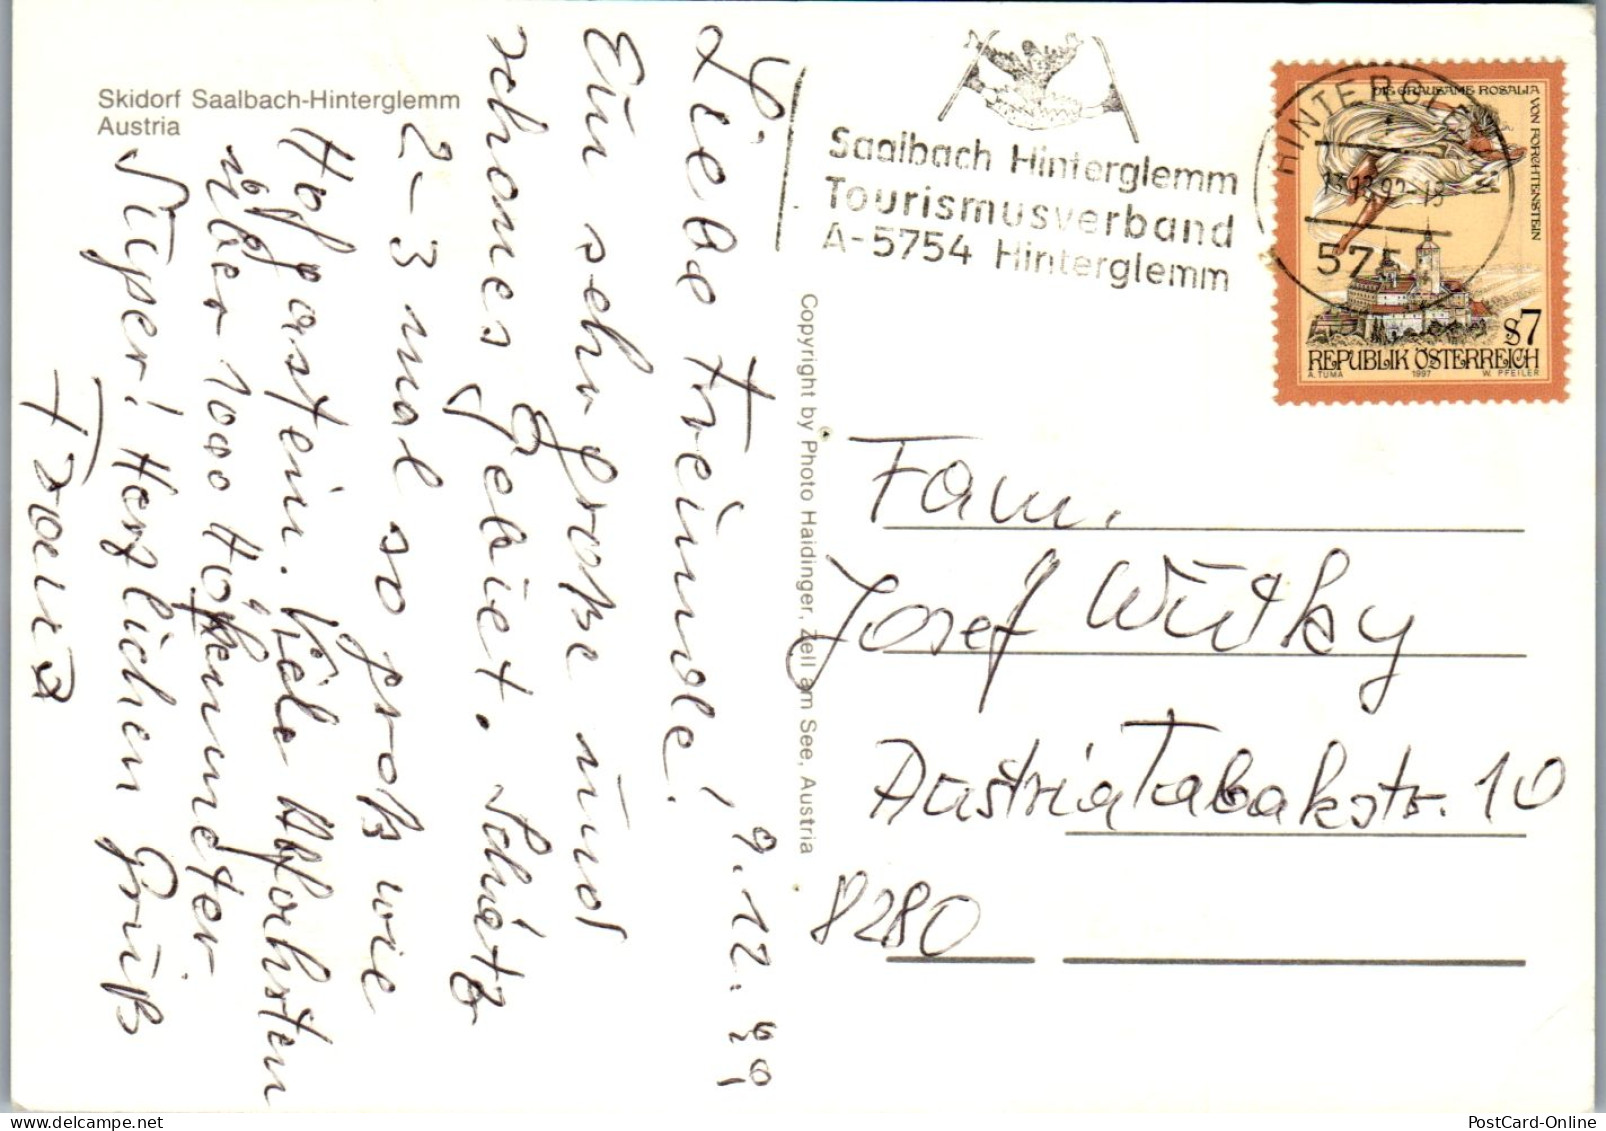 Skidorf Saalbach-Hinterglemm
Austria
9.12.99
Liebe Freunde!
Ein sehr große und
schönes Gebiet. Schätz
2-3 mal so groß wie
Hofgastein. Viele Abfahrten
über 1000 Höhenmeter.
Super! Herzlichen Gruß
Franz
Copyright by Photo Haidinger, Zell am See, Austria
Saalbach Hinterglemm
Tourismusverband
A-5754 Hinterglemm
HINTERGLEMM
5754
DIE GRAUSAME ROSALIA
VON FORCHTENSTEIN
S7
REPUBLIK ÖSTERREICH
A. TUMA 1997 W. PFEILER
Fam.
Josef Wutky
Austria Tabakstr. 10
8280
PostCard-Online